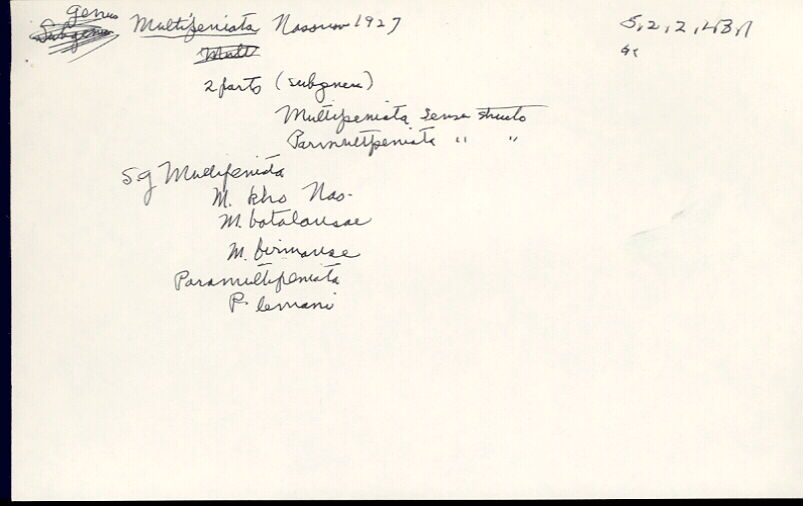 Genus Multipeniata Nasonov 1927
2 parts (subgenera)
Multipeniata sensu stricto
Parmultipeniata " "
Sg Multipeniata
M. kho Nas-
M. batalansae
M. birmanse
Paramultipeniata
P. lemani